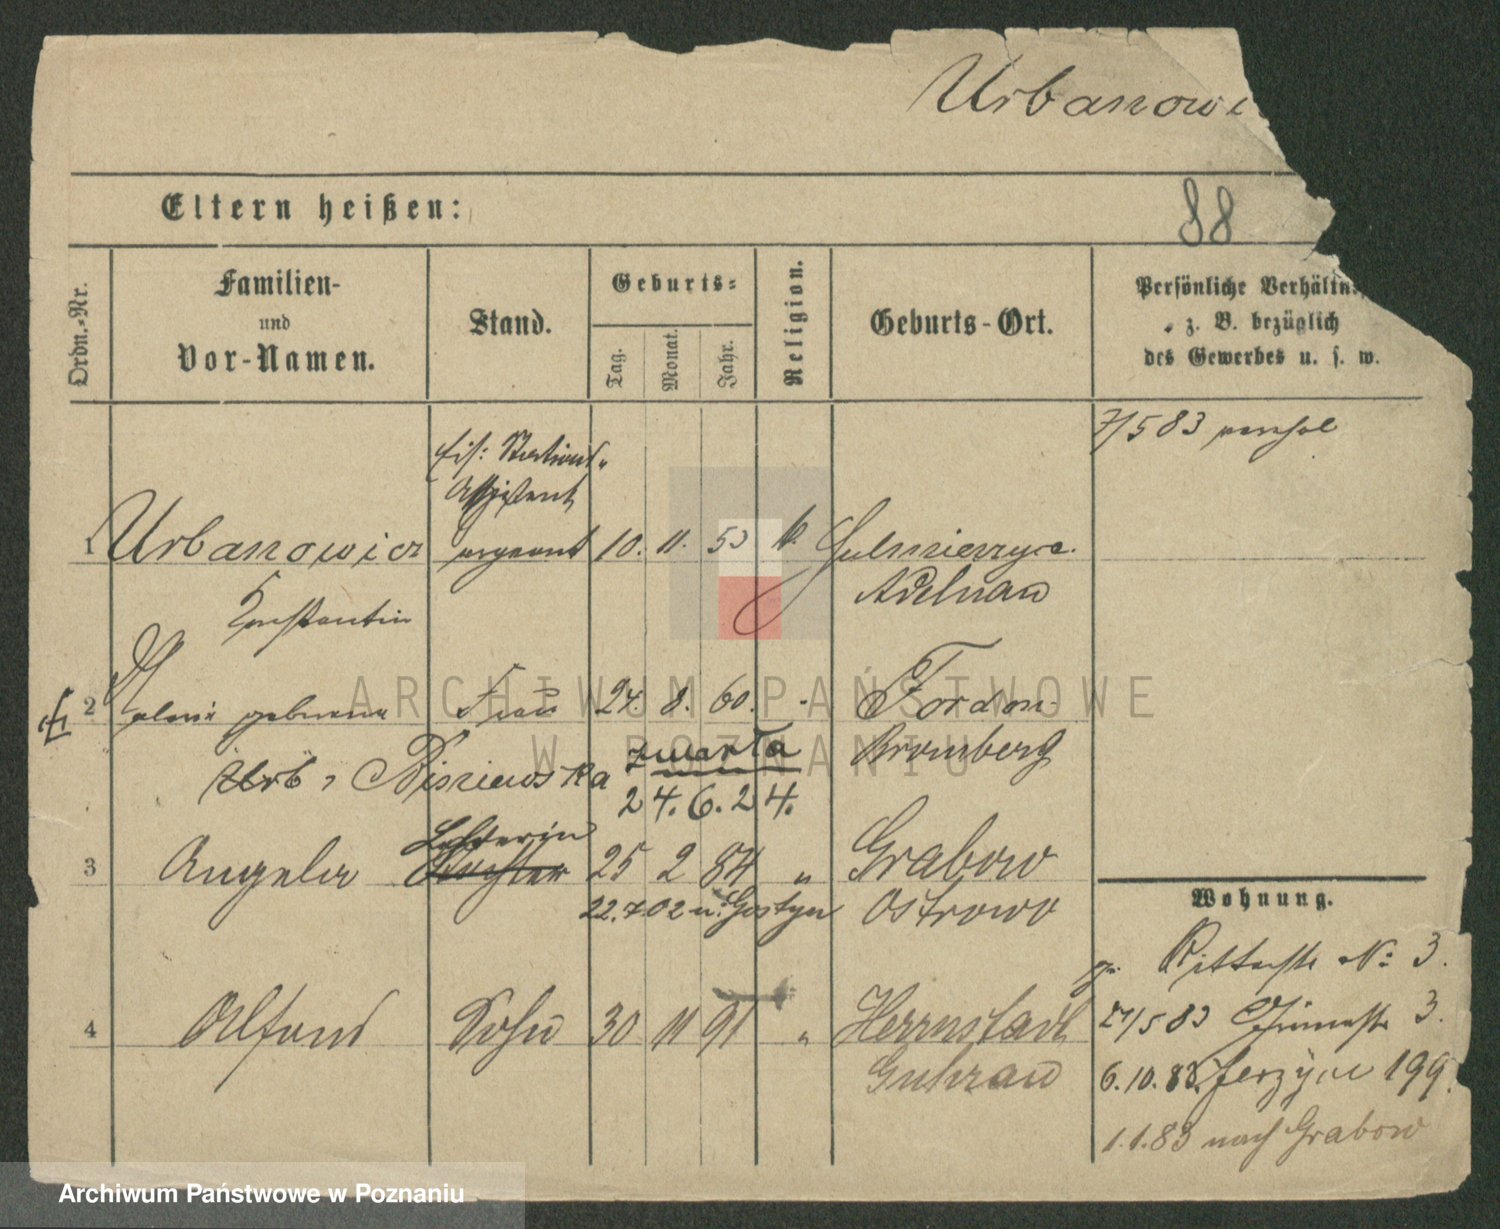 Urbanowi
Eltern heißen:
88
Ordn.-Nr.
Familien-
und
Vor-Namen.
Stand.
Geburts-
Tag.
Monat.
Jahr.
Religion.
Geburts-Ort.
Persönliche Verhältn
z. B. bezüglich
des Gewerbes u. s. w.
7/5 83
Assistent
1 Urbanowicz 10. 11. 53 k.
Adelnau
Konstantin
2 geborene Frau 24. 8. 60. Fordon
Urb, zwarta Bromberg
24. 6. 24.
Lehrerin
3 Angela Tochter 25 2 84 " Grabow
22.7 02 n. Gostyn Ostrowo
Wohnung.
Ritterstr No 3.
4 Alfons Sohn 30 11 91 " Herrnstadt
27/5 83 3.
Guhrau
6.10.83 Jerzyce 199.
1.1.83 nach Grabow
ARCHIWUM PAŃSTWOWE
W POZNANIU
Archiwum Państwowe w Poznaniu